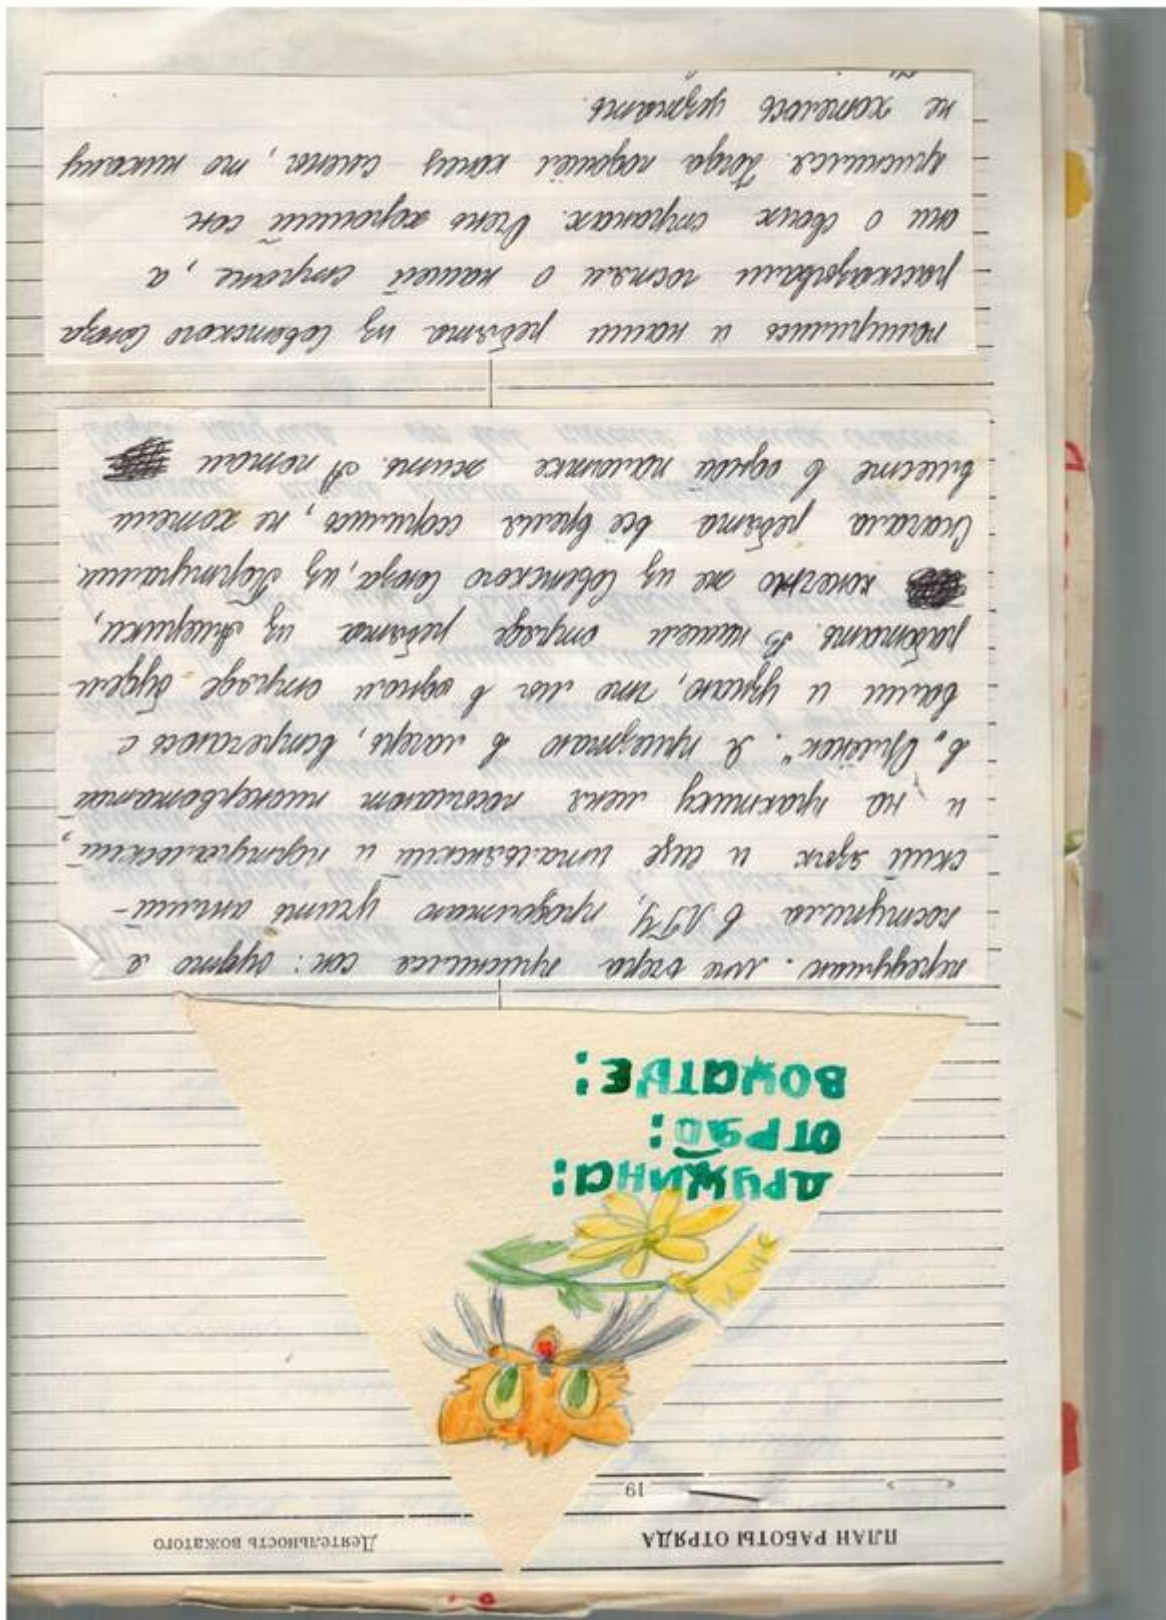 ПЛАН РАБОТЫ ОТРЯДА
Деятельность вожатого
19
ДРУЖИНа:
ОТРЯД:
ВОЖаТЫЕ:
передумаю. Мне вчера приснился сон: будто я
поступила в ЛГУ, продолжаю учить англий-
ский язык и еще итальянский и португальский,
и на практику меня посылают пионервожатой
в „Орлёнок". Я приезжаю в лагерь, встречаюсь с
вами и узнаю, что мы в одном отряде будем
работать. В нашем отряде ребята из Америки,
конечно же из Советского Союза, из Португалии.
Сначала ребята всё время ссорились, не хотели
вместе в одной палатке жить. А потом
помирились и наши ребята из Советского Союза
рассказывали гостям о нашей стране, а
они о своих странах. Очень хороший сон
приснился. Когда подошёл конец смены, то никому
не хотелось уезжать.